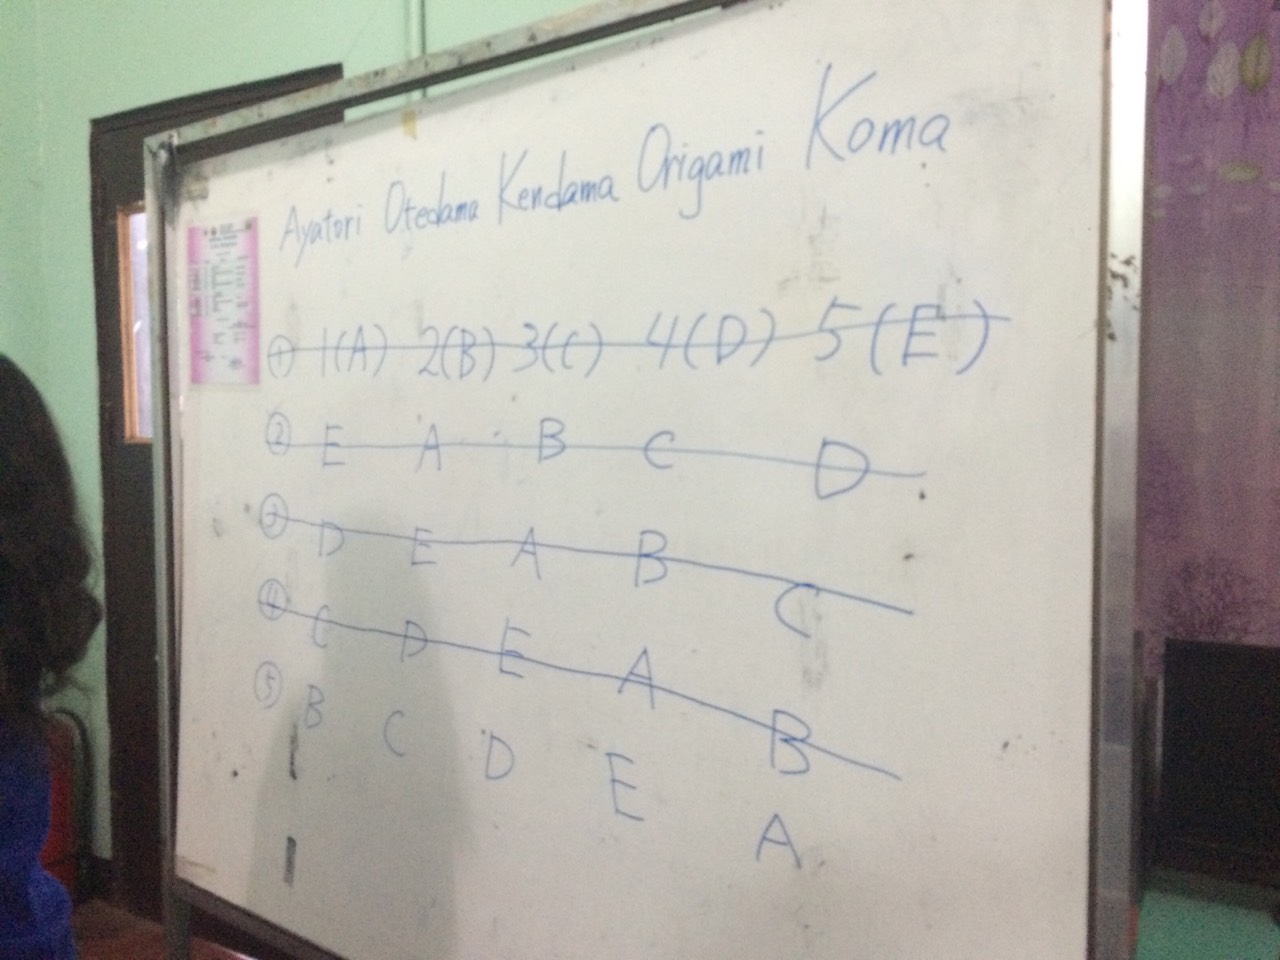 Ayatori Otedama Kendama Origami Koma
① 1(A) 2(B) 3(C) 4(D) 5(E)
② E A B C D
③ D E A B C
④ C D E A B
⑤ B C D E A